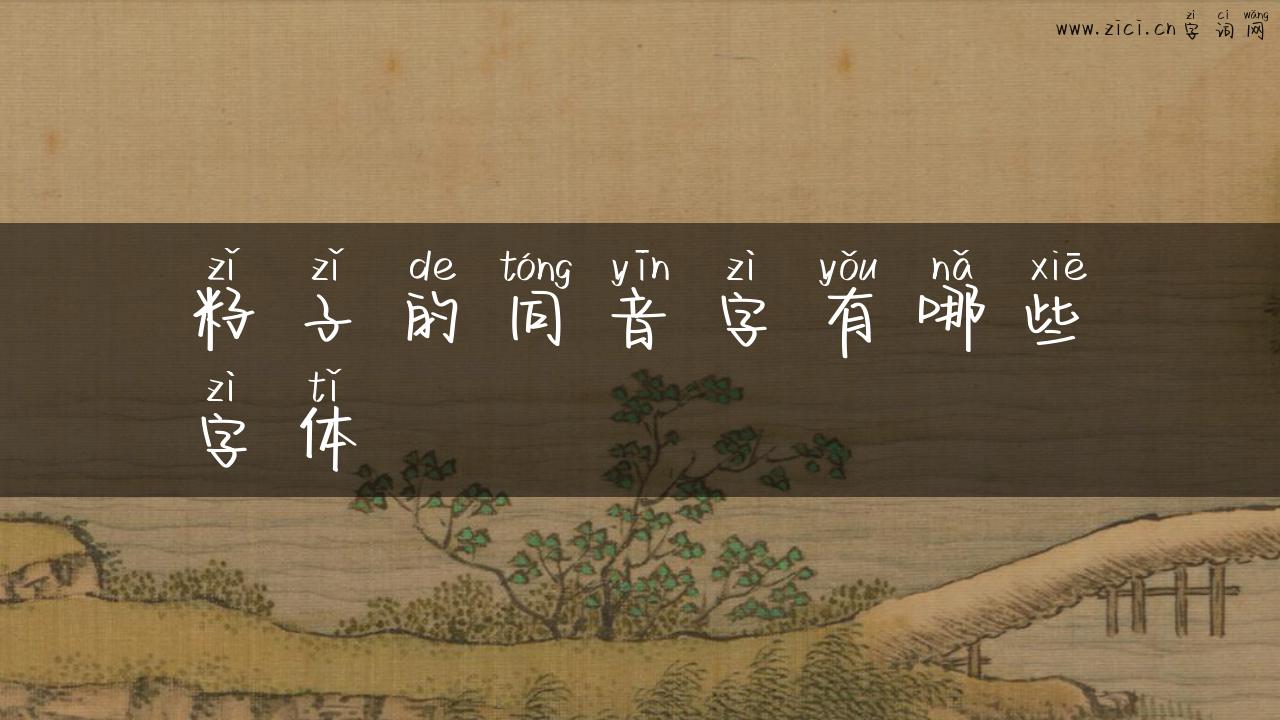 zì cí wǎng
www.zici.cn 字词网
zǐ zǐ de tóng yīn zì yǒu nǎ xiē
籽子的同音字有哪些
zì tǐ
字体